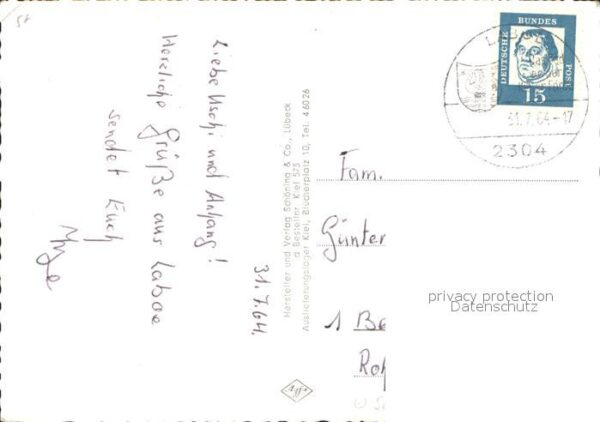 57
Liebe Uschi und Anhang!
Herzliche Grüße aus Laboe
sendet Euch
31.7.64.
Hersteller und Verlag Schöning & Co., Lübeck
Besteller Kiel 575
Auslieferungslager Kiel, Blücherplatz 10, Tel. 46026
Agfa
DEUTSCHE BUNDES POST
15
31.7.64-17
2304
Fam.
Günter
privacy protection
Datenschutz
1 Be